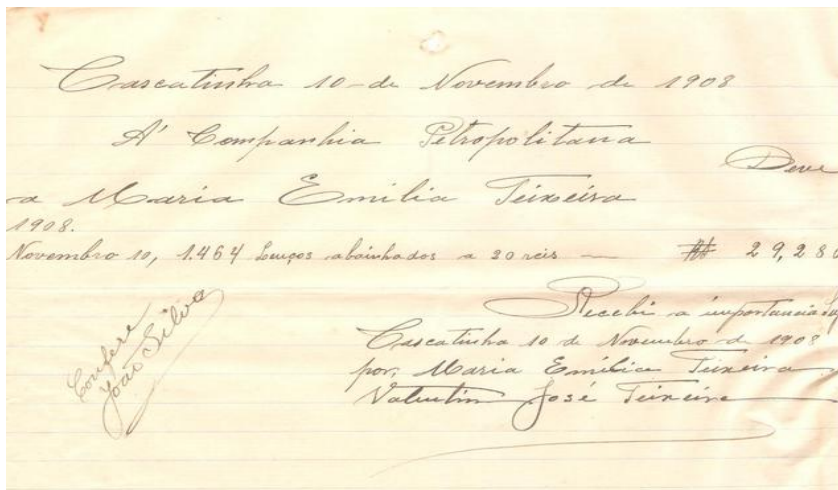 Cascatinha 10 de Novembro de 1908
A' Companhia Petropolitana
Deve
a Maria Emilia Teixeira
1908.
Novembro 10, 1.464 Lenços abainhados a 20 reis — 29,280
Recebi a importancia
Cascatinha 10 de Novembro de 1908
por, Maria Emilia Teixeira
Valentin José Teixeira
Confere
João Silva